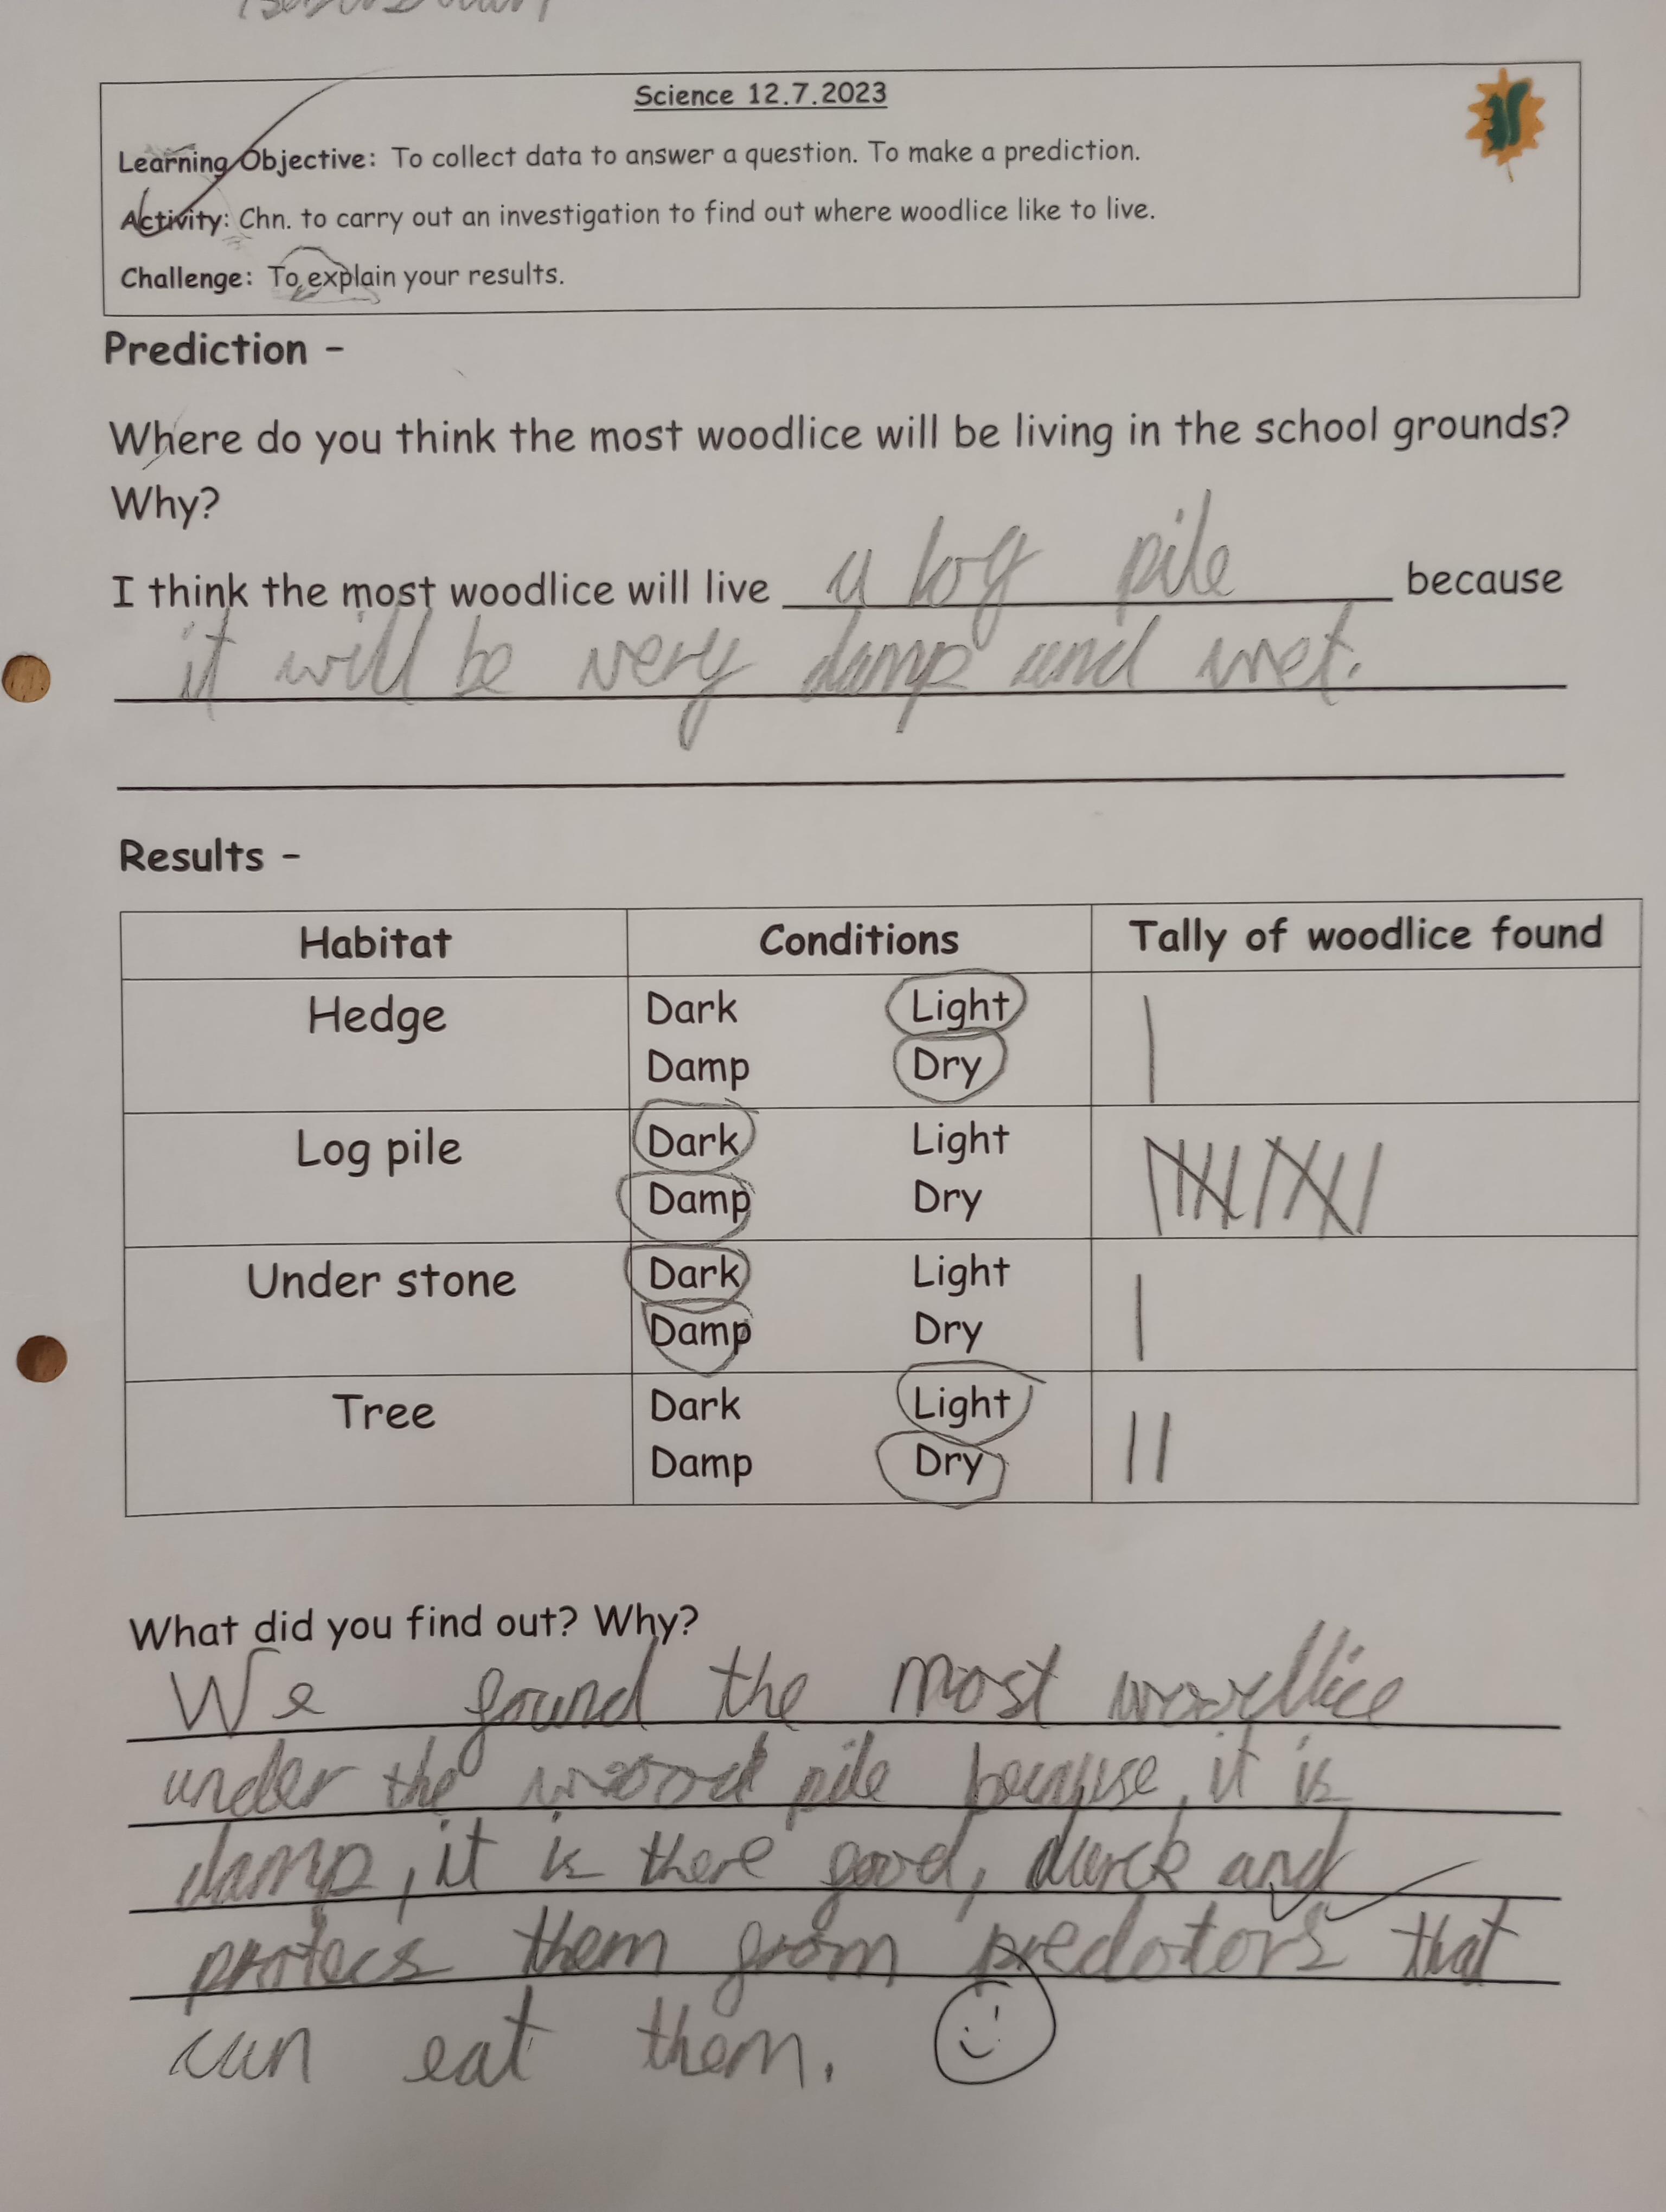 Science 12.7.2023
Learning Objective: To collect data to answer a question. To make a prediction.
Activity: Chn. to carry out an investigation to find out where woodlice like to live.
Challenge: To explain your results.
Prediction -
Where do you think the most woodlice will be living in the school grounds?
Why?
I think the most woodlice will live a log pile because
it will be very damp and wet.
Results -
Habitat Conditions Tally of woodlice found
Hedge Dark Light
Damp Dry
Log pile Dark Light
Damp Dry
Under stone Dark Light
Damp Dry
Tree Dark Light
Damp Dry
What did you find out? Why?
We found the most woodlice
under the wood pile because, it is
damp, it is there good, darck and
protecs them from predotors that
can eat them.